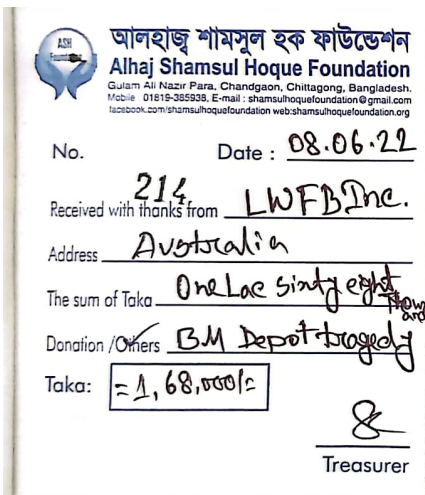 ASH
Foundation
আলহাজ্ব শামসুল হক ফাউন্ডেশন
Alhaj Shamsul Hoque Foundation
Gulam Ali Nazir Para, Chandgaon, Chittagong, Bangladesh.
Mobile 01819-385938, E-mail : shamsulhoquefoundation@gmail.com
facebook.com/shamsulhoquefoundation web:shamsulhoquefoundation.org
No. 214
Date : 08.06.22
Received with thanks from LWFB Inc.
Address Australia
The sum of Taka One Lac sixty eight Thousand
Donation /Others BM Depot tragedy
Taka: =1,68,000/=
Treasurer